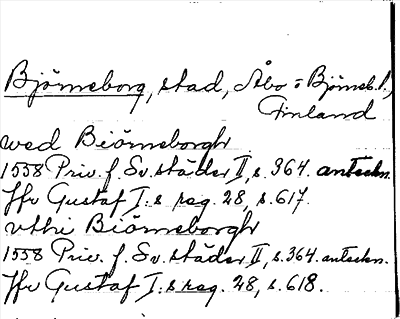 Björneborg, stad, Åbo = Björneb. l.,
Finland
wed Biörneborgh
1558 Priv. f. Sv. städer II, s. 364. anteckn.
Jfr Gustaf I:s reg. 28, s. 617.
vthi Biörneborgh
1558 Priv. f. Sv. städer II, s. 364. anteckn.
Jfr Gustaf I:s reg. 28, s. 618.